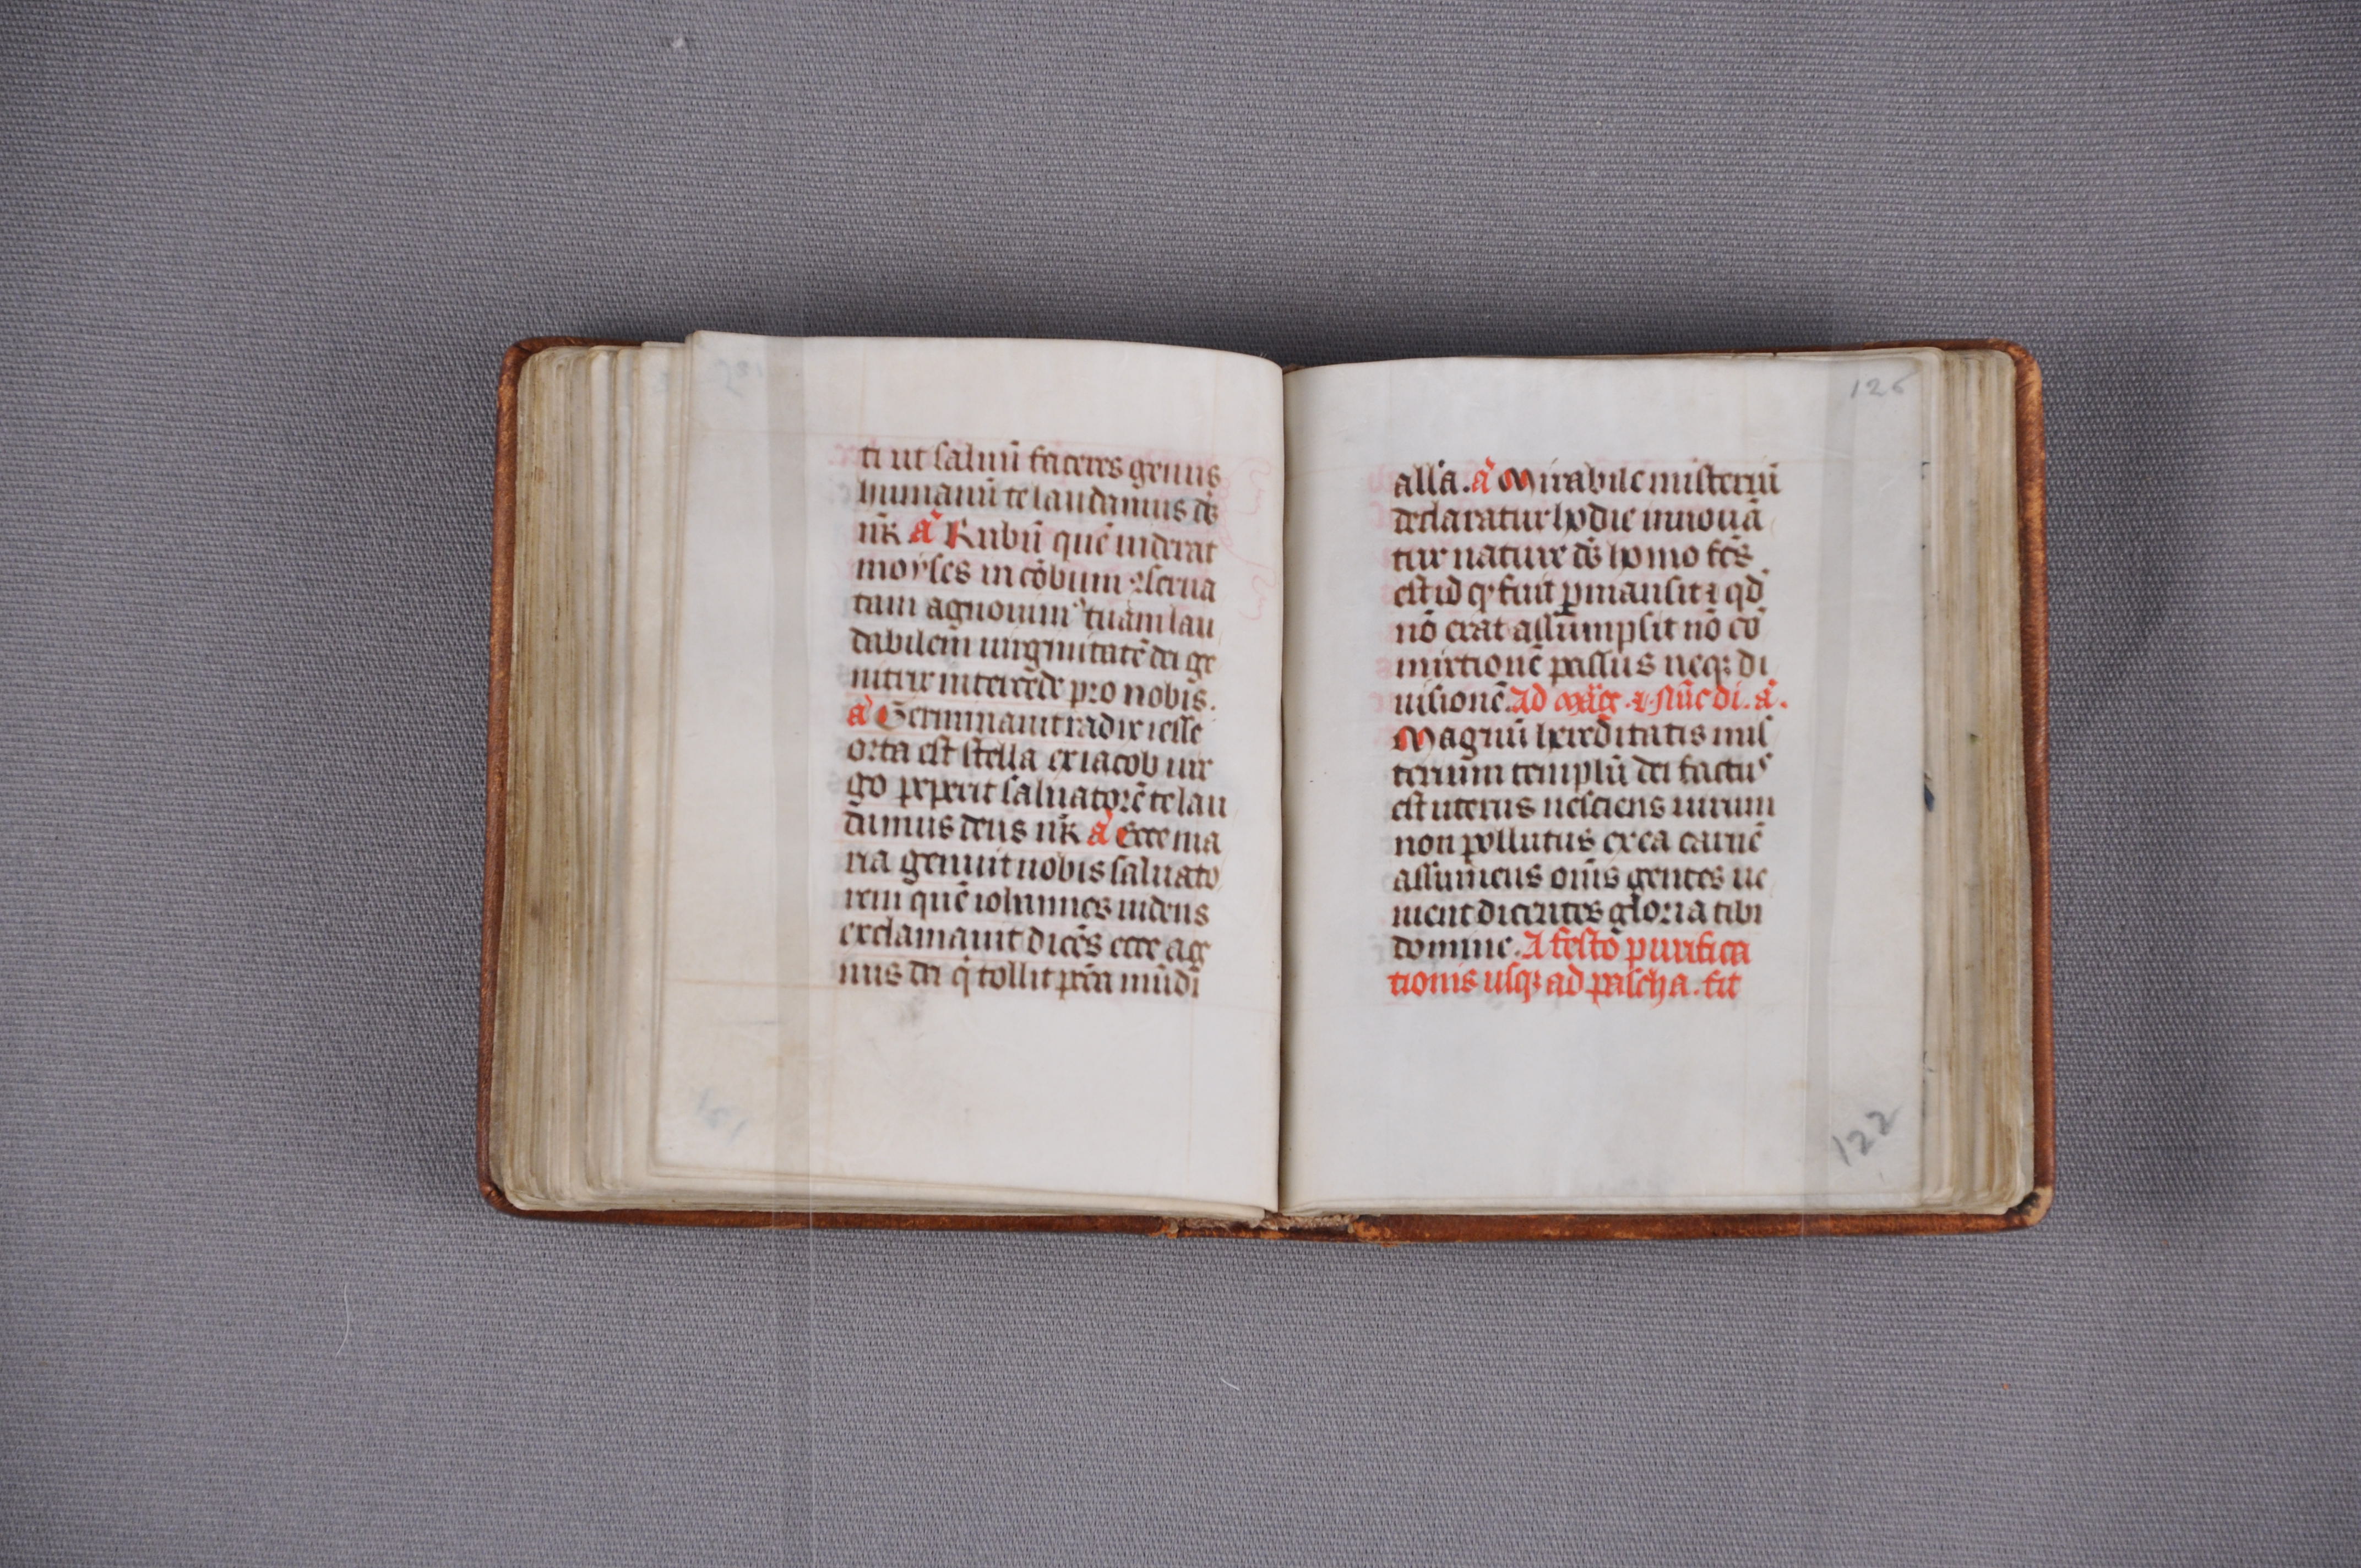 ti ut saluū faceres genus
humanū te laudamus ds̄
nr̄ a᷎ Rubū quē uiderat
moyses incōbustum ꝯserua
tam agnouimꝰ tuam lau
dabilem uirginitatē dei ge
nitrix intercede pro nobis.
a᷎ Germinauit radix iesse
orta est stella ex iacob uir
go peperit saluatorē te lau
damus deus nr̄ a᷎ Ecce ma
ria genuit nobis saluato
rem quē iohannes uidens
exclamauit dicēs ecce ag
nus dei q̇ tollit pc̄cā mūdi
126
all'a. a᷎ Mirabile misteriū
declaratur hodie innouā
tur nature ds̄ homo fc̄s
est id qꝫ fuit ꝑmansit ⁊ qd̄
nō erat assumpsit nō cō
mixtionē passus neqꝫ di
uisionē. Ad mag̃. ⁊ Nūc di. a᷎.
Magnū hereditatis mis
terium templū dei factuꝰ
est uterus nesciens uirum
non pollutus ex ea carnē
assumens om̄s gentes ue
nient dicentes gloria tibi
domine. A festo purifica
tionis usqꝫ ad pascha. fit
122